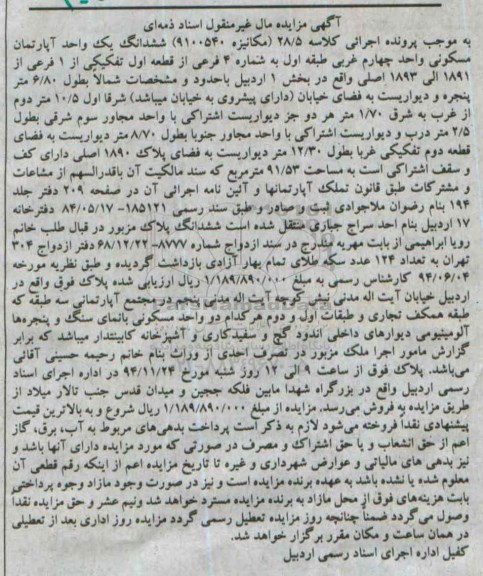 آگهی مزایده مال غیرمنقول اسناد ذمه‌ای
به موجب پرونده اجرائی کلاسه ۲۸/۵ (مکانیزه ۹۱۰۰۵۴۰) ششدانگ یک واحد آپارتمان
مسکونی واحد چهارم غربی طبقه اول به شماره ۴ فرعی از قطعه اول تفکیکی از ۱ فرعی از
۱۸۹۱ الی ۱۸۹۳ اصلی واقع در بخش ۱ اردبیل باحدود و مشخصات شمالاً بطول ۶/۸۰ متر
پنجره و دیواریست به فضای خیابان (دارای پیشروی به خیابان میباشد) شرقا اول ۱۰/۵ متر دوم
از غرب به شرق ۱/۷۰ متر هر دو جز دیواریست اشتراکی با واحد مجاور سوم شرقی بطول
۲/۵ متر درب و دیواریست اشتراکی با واحد مجاور جنوبا بطول ۸/۷۰ متر دیواریست به فضای
قطعه دوم تفکیکی غربا بطول ۱۲/۳۰ متر دیواریست به فضای پلاک ۱۸۹۰ اصلی دارای کف
و سقف اشتراکی است به مساحت ۹۱/۵۳ مترمربع که سند مالکیت آن باقدرالسهم از مشاعات
و مشترکات طبق قانون تملک آپارتمانها و آئین نامه اجرائی آن در صفحه ۲۰۹ دفتر جلد
۱۹۴ بنام رضوان ملاجوادی ثبت و صادر و طبق سند رسمی ۱۸۵۱۲۱- ۸۴/۰۵/۱۷ دفترخانه
۱۷ اردبیل بنام احد سراج جباری منتقل شده است ششدانگ پلاک مزبور در قبال طلب خانم
رویا ابراهیمی از بابت مهریه مندرج در سند ازدواج شماره ۸۷۷۷-۶۸/۱۲/۲۲ دفتر ازدواج ۳۰۴
تهران به تعداد ۱۲۴ عدد سکه طلای تمام بهار آزادی بازداشت گردیده و طبق نظریه مورخه
۹۴/۰۶/۰۴ کارشناس رسمی به مبلغ ۱/۱۸۹/۸۹۰/۰۰۰ ریال ارزیابی شده پلاک فوق واقع در
اردبیل خیابان آیت اله مدنی نبش کوچه آیت اله مدنی پنجم در مجتمع آپارتمانی سه طبقه که
طبقه همکف تجاری و طبقات اول و دوم هر کدام دو واحد مسکونی بانمای سنگ و پنجره‌ها
آلومینیومی دیوارهای داخلی اندود گچ و سفیدکاری و آشپزخانه کابینتدار میباشد که برابر
گزارش مامور اجرا ملک مزبور در تصرف احدی از وراث بنام خانم رحیمه حسینی آقائی
می‌باشد. پلاک فوق از ساعت ۹ الی ۱۲ روز شنبه مورخ ۹۴/۱۱/۲۴ در اداره اجرای اسناد
رسمی اردبیل واقع در بزرگراه شهدا مابین فلکه ججین و میدان قدس جنب تالار میلاد از
طریق مزایده به فروش می‌رسد. مزایده از مبلغ ۱/۱۸۹/۸۹۰/۰۰۰ ریال شروع و به بالاترین قیمت
پیشنهادی نقداً فروخته می‌شود لازم به ذکر است پرداخت بدهی‌های مربوط به آب، برق، گاز
اعم از حق انشعاب و یا حق اشتراک و مصرف در صورتی که مورد مزایده دارای آنها باشد و
نیز بدهی های مالیاتی و عوارض شهرداری و غیره تا تاریخ مزایده اعم از اینکه رقم قطعی آن
معلوم شده یا نشده باشد به عهده برنده مزایده است و نیز در صورت وجود مازاد وجوه پرداختی
بابت هزینه‌های فوق از محل مازاد به برنده مزایده مسترد خواهد شد ونیم عشر و حق مزایده نقداً
وصول می‌گردد ضمناً چنانچه روز مزایده تعطیل رسمی گردد مزایده روز اداری بعد از تعطیلی
در همان ساعت و مکان مقرر برگزار خواهد شد.
کفیل اداره اجرای اسناد رسمی اردبیل